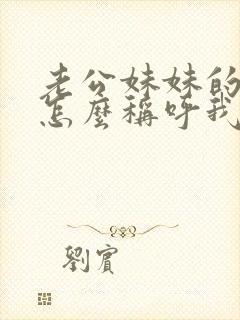 老公妹妹的
怎麼稱呼我
劉賓